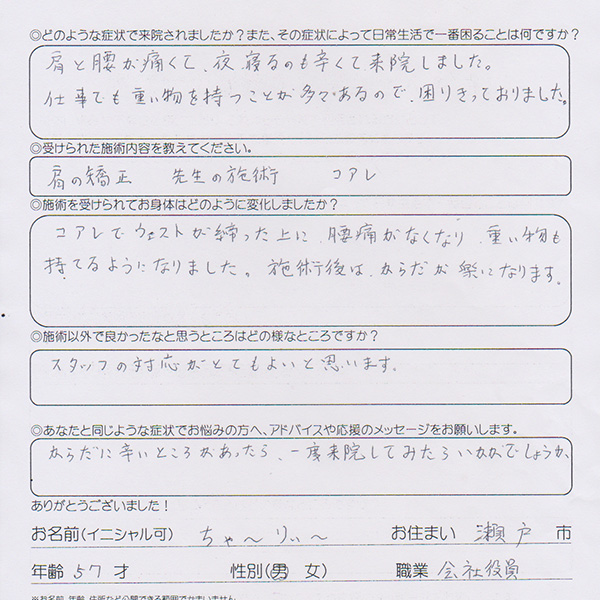 ◎どのような症状で来院されましたか?また、その症状によって日常生活で一番困ることは何ですか?
肩と腰が痛くて、夜、寝るのも辛くて来院しました。
仕事でも重い物を持つことが多々あるので、困りきっておりました。
◎受けられた施術内容を教えてください。
肩の矯正 先生の施術 コアレ
◎施術を受けられてお身体はどのように変化しましたか?
コアレでウェストが締った上に、腰痛がなくなり、重い物も
持てるようになりました。施術後は、からだが楽になります。
◎施術以外で良かったなと思うところはどの様なところですか?
スタッフの対応がとてもよいと思います。
◎あなたと同じような症状でお悩みの方へ、アドバイスや応援のメッセージをお願いします。
からだに辛いところがあったら、一度来院してみたらいかがでしょうか、
ありがとうございました!
お名前(イニシャル可) ちゃ〜りぃ〜 お住まい 瀬戸 市
年齢 57 才 性別(男 女) 職業 会社役員
※お名前、年齢、住所など公開できる範囲でかまいません